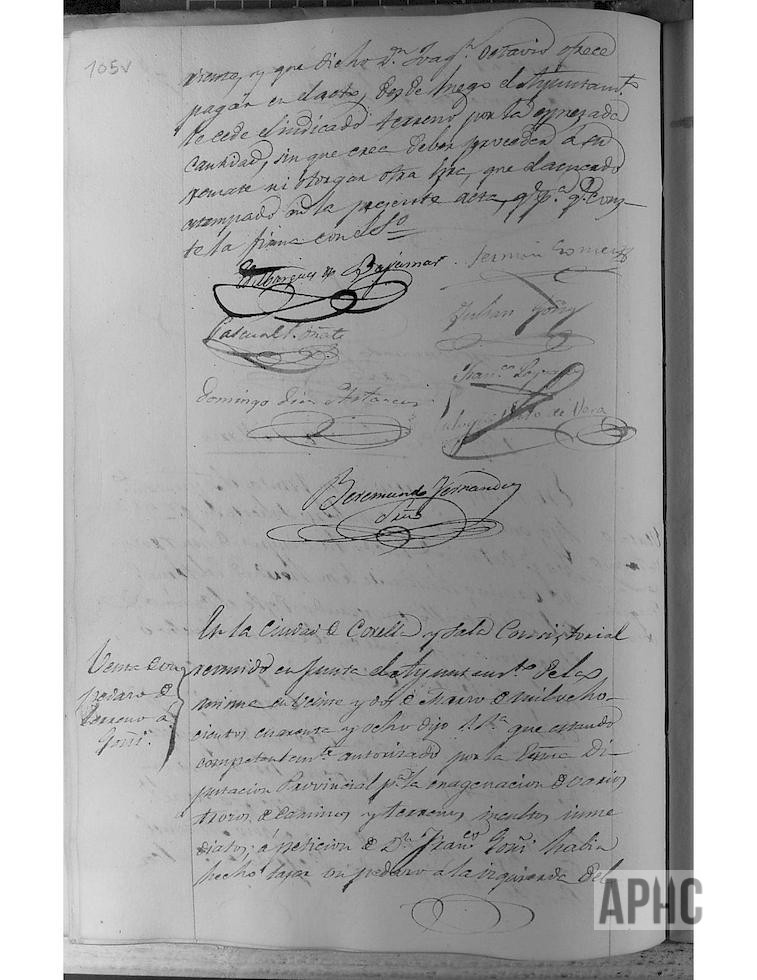 105v
viento, y que dicho Dn. Joaqn. Octavio ofrece
pagar en el acto, desde luego el Ayuntamto.
le cede el indicado terreno por la espresada
cantidad, sin que crea deber proceder á su
remate ni otorgar otra que el acuerdo
estampado en la presente acta, qe. pa. qe. conste
la firma con el So.
El Marques de Bajamar
Fermin Gomez
Pascual Oñate
Julian Goñi
Domingo Diez
Franco.
de Vera
Beremundo Fernandez
Srio
Venta de un
pedazo de
terreno á
Goñi.
En la Ciudad de Corella y Sala Consistorial
reunido en Junta el Ayuntamto. de la
misma en veinte y dos de Enero de mil ocho-
cientos cuarenta y ocho dijo S. Sa. que estando
competentemte. autorizado por la Escma Di-
putacion Provincial pa. la enagenacion de varios
trozos de caminos y terrenos incultos inme
diatos, á peticion de Dn. Franco. Goñi habia
hecho tasar un pedazo a la izquierda del
APHC